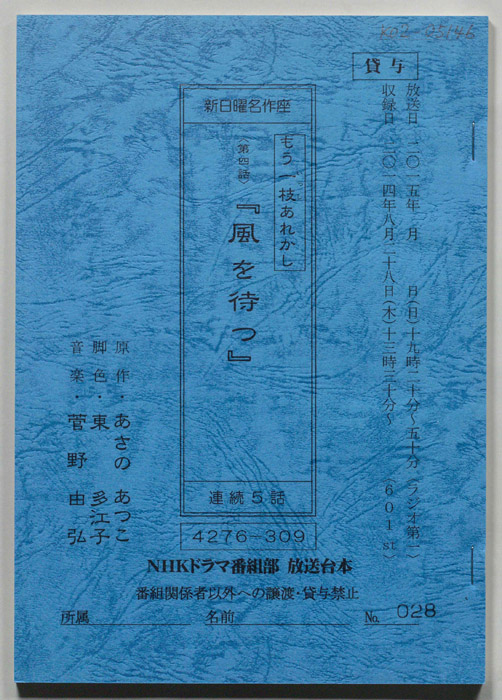 貸与
放送日 二〇一五年 月 日(日)十九時二十分～五十分(ラジオ第一)
収録日 二〇一四年八月二十八日(木)十三時三十分～(601st)
新日曜名作座
もう一枝あれかし
(第四話)
『風を待つ』
連続5話
4276-309
原作・あさの あつこ
脚色・東 多江子
音楽・菅野 由弘
NHKドラマ番組部 放送台本
番組関係者以外への譲渡・貸与禁止
所属 名前 No. 028